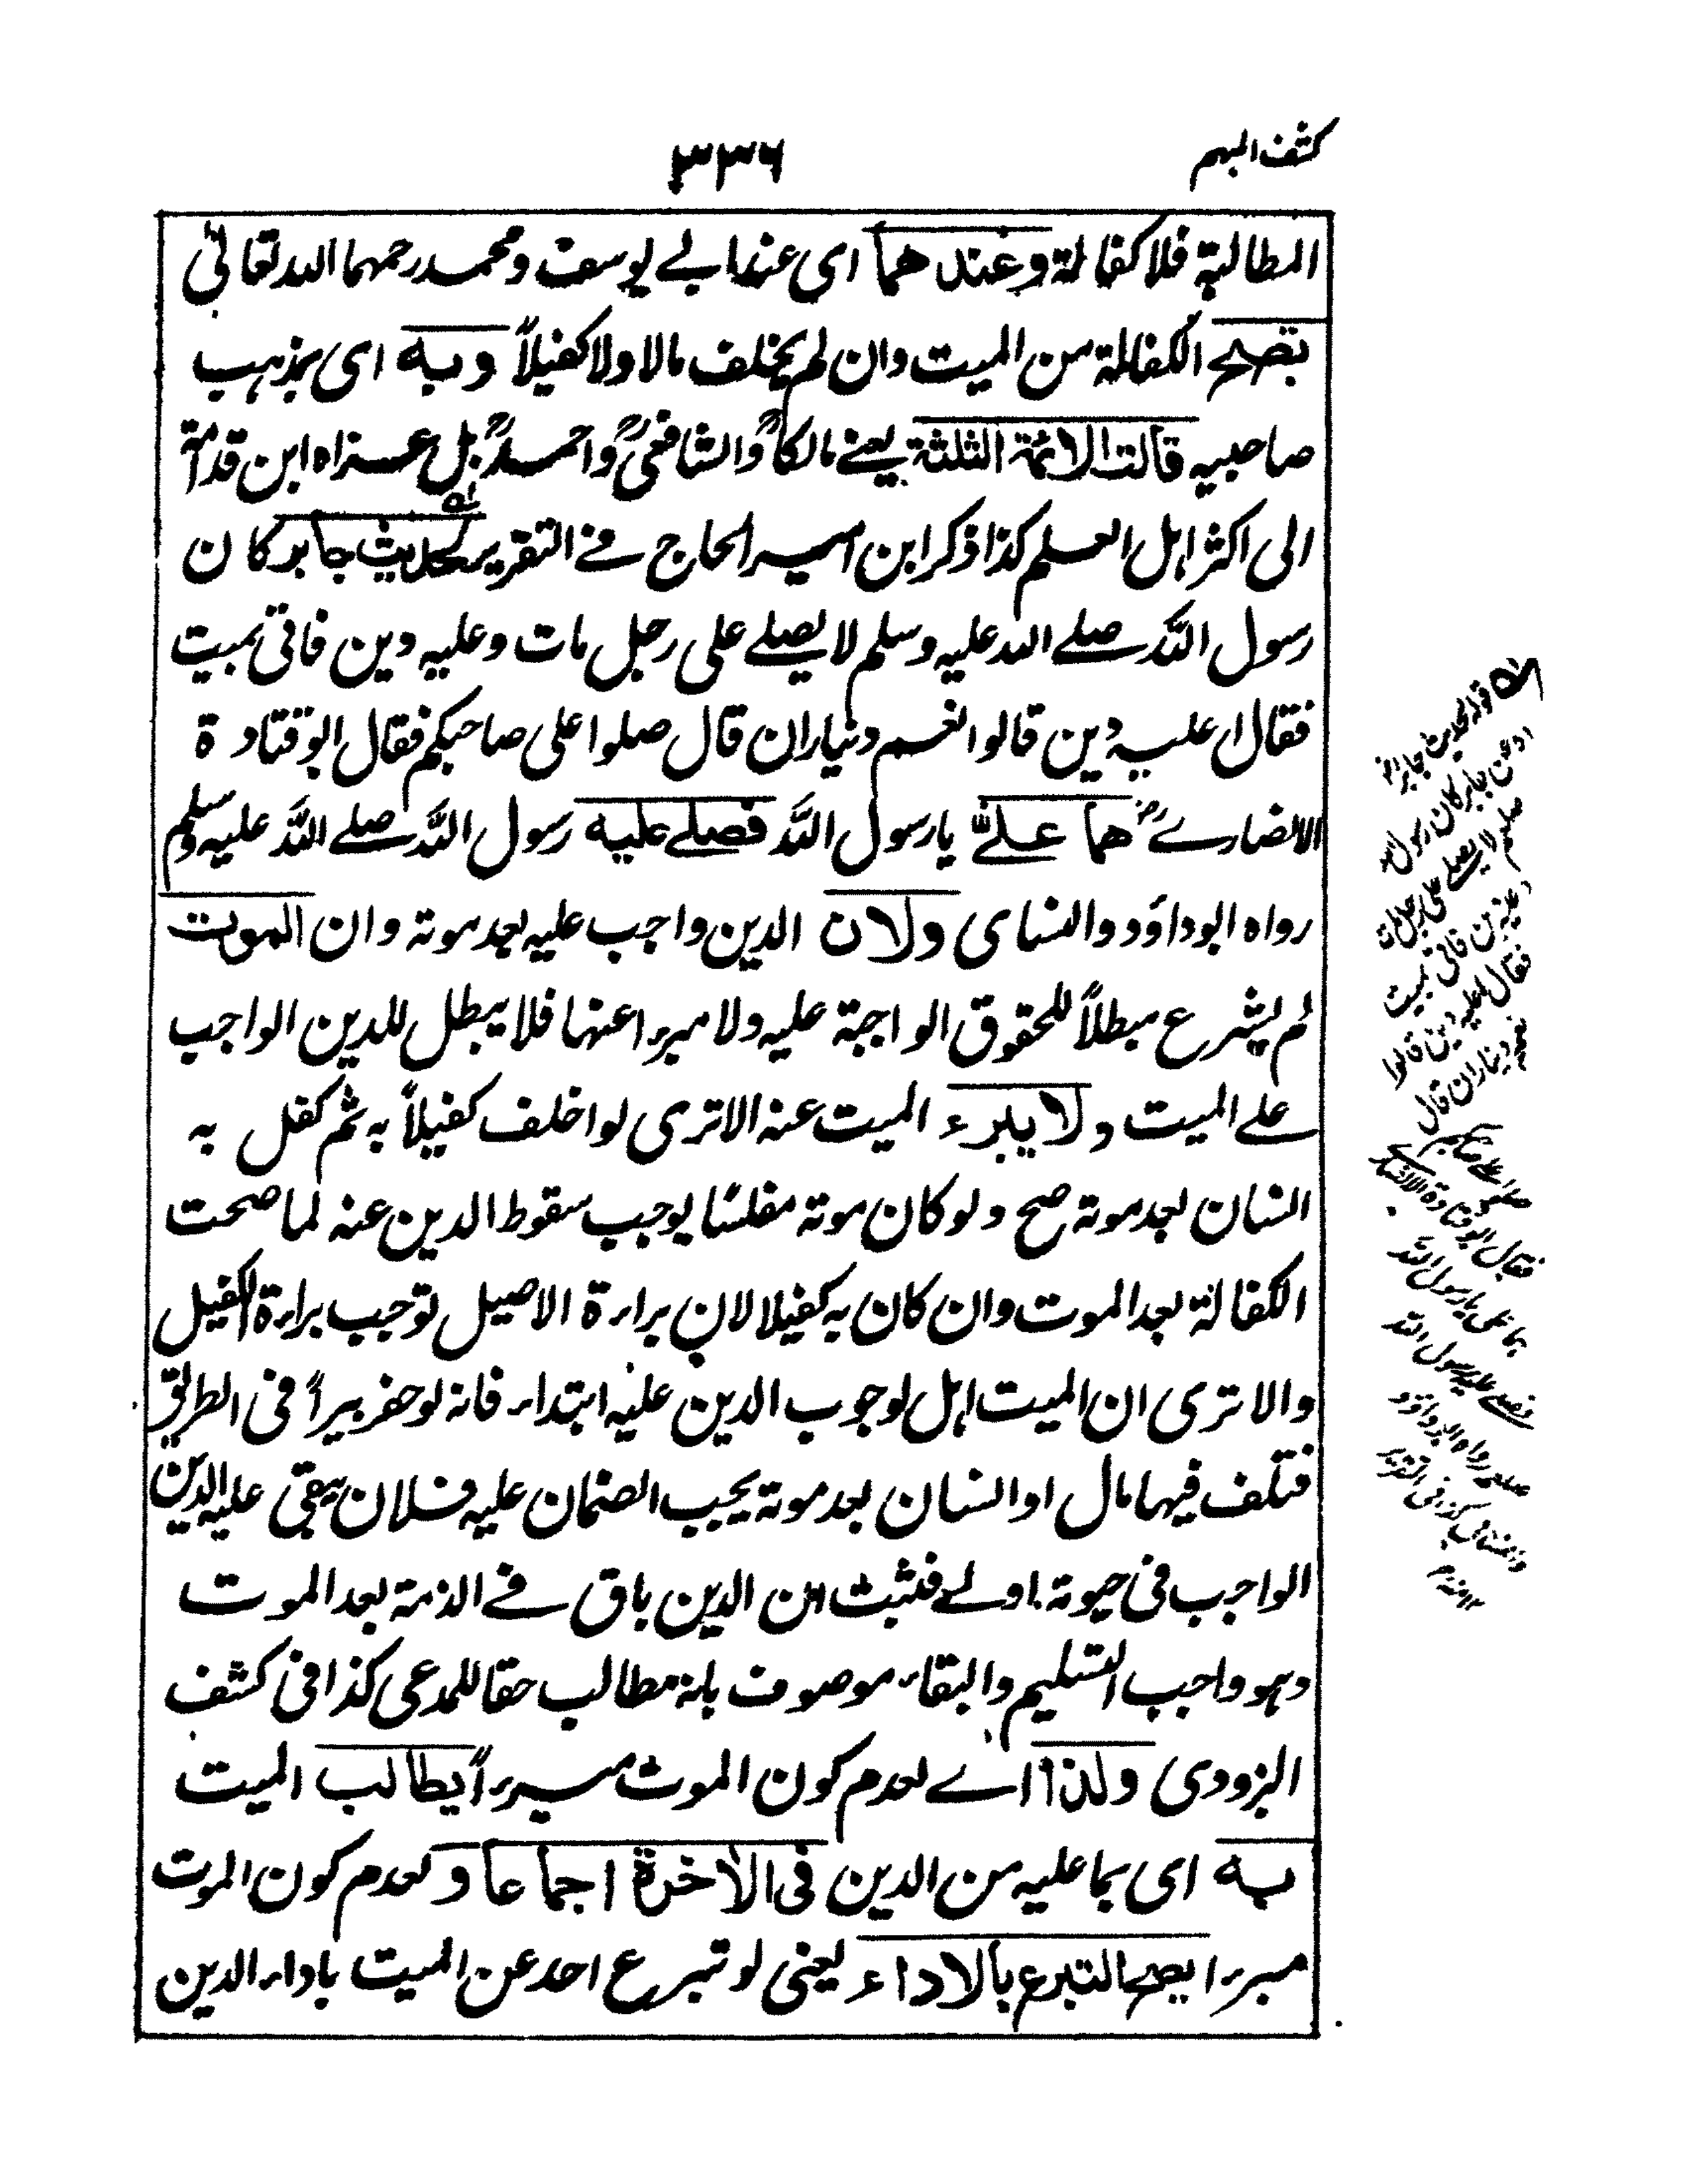 كشف المبهم
٣٣٦
المطالبة فلا كفالة وعندهما اى عند ابى يوسف ومحمد رحمهما الله تعالى
تصح الكفالة من الميت وان لم يخلف مالا ولا كفيلاً وبه اى بمذهب
صاحبيه قالت الائمة الثلثة يعنے مالكاً والشافعى واحمد بل عزاه ابن قدامة
الى اكثر اهل العلم كذا ذكر ابن امير الحاج فے التقرير لحديث جابر كان
رسول الله صلے الله عليه وسلم لا يصلے على رجل مات وعليه دين فاتى بميت
فقال اعليه دين قالوا نعم ديناران قال صلوا على صاحبكم فقال ابو قتادة
الانصارے هما علے يا رسول الله فصلے عليه رسول الله صلے الله عليه وسلم
رواه ابوداؤد والنساى ولان الدين واجب عليه بعد موته وان الموت
لم يشرع مبطلاً للحقوق الواجبة عليه ولا مبرا عنها فلا يبطل للدين الواجب
علے الميت ولا يبرء الميت عنه الا ترى لو اخلف كفيلاً به ثم كفل به
انسان بعد موته صح ولو كان موته مفلسًا يوجب سقوط الدين عنه لما صحت
الكفالة بعد الموت وان كان به كفيلا لان براءة الاصيل توجب براءة الكفيل
والا ترى ان الميت اهل لوجوب الدين عليه ابتداء فانه لو حفر بيراً فى الطريق
فتلف فيها مال او انسان بعد موته يجب الضمان عليه فلان يبقى عليه الدين
الواجب فى حيوته اولے فثبت ان الدين باق فے الذمة بعد الموت
وهو واجب التسليم والبقاء موصوف بانه مطالب حقا للمدعى كذا فى كشف
البزودى ولذا اے لعدم كون الموت مبرءاً يطالب الميت
به اى بما عليه من الدين فى الاخرة اجماعا و لعدم كون الموت
مبرءا يصح التبرع بالاداء يعنى لو تبرع احد عن الميت باداء الدين
قوله لحديث جابر الخ
عن جابر كان رسول الله
صلعم لا يصلے على رجل مات
وعليه دين فاتى بميت
فقال اعليه دين قالوا
نعم ديناران قال
صلوا علے صاحبكم
فقال ابو قتادة الانصارے
هما على يا رسول الله
فصلے عليه رسول الله
صلعم رواه ابو داؤد
والنسائى كذا فى التقرير
١٢ منه